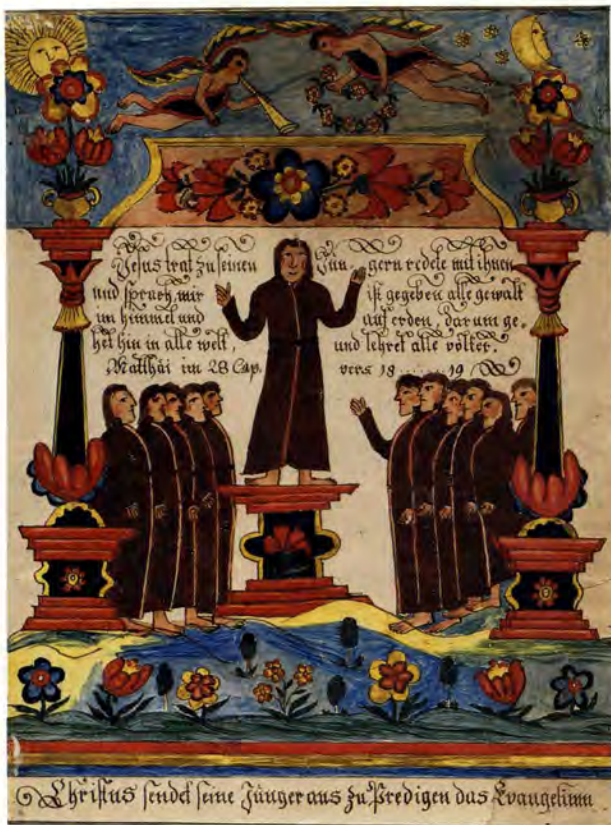 Jesus trat zu seinen Jün- gern redete mit ihnen
und sprach, mir ist gegeben alle gewalt
im himmel und auf erden, dar um ge,
het hin in alle welt, und lehret alle völker.
Matthäi im 28 Cap. vers 18......19
Christus sendet seine Jünger aus zu Predigen das Evangelium